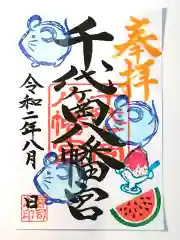 奉拝
千代ヶ岡八幡宮
令和二年八月
日